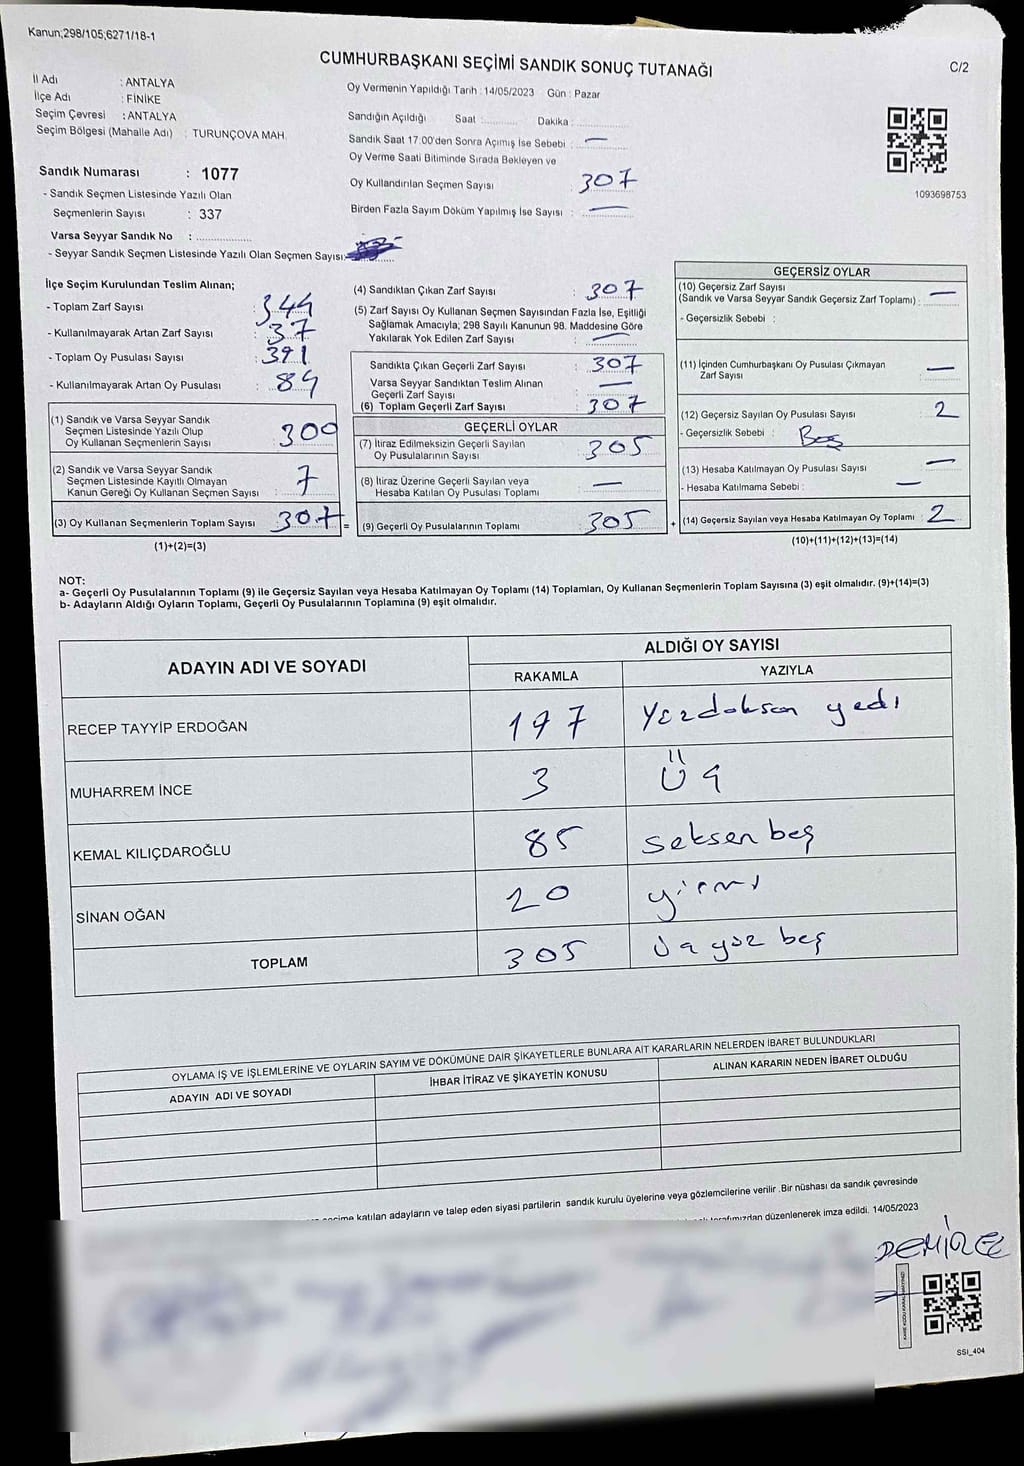 Kanun;298/105;6271/18-1
CUMHURBAŞKANI SEÇİMİ SANDIK SONUÇ TUTANAĞI
C/2
İl Adı : ANTALYA
İlçe Adı : FİNİKE
Seçim Çevresi : ANTALYA
Seçim Bölgesi (Mahalle Adı) : TURUNÇOVA MAH.
Oy Vermenin Yapıldığı Tarih : 14/05/2023 Gün : Pazar
Sandığın Açıldığı Saat :............ Dakika :............
Sandık Saat 17:00'den Sonra Açımış İse Sebebi : —
Oy Verme Saati Bitiminde Sırada Bekleyen ve
Oy Kullandırılan Seçmen Sayısı : 307
Birden Fazla Sayım Döküm Yapılmış İse Sayısı : —
1093698753
Sandık Numarası : 1077
- Sandık Seçmen Listesinde Yazılı Olan
Seçmenlerin Sayısı : 337
Varsa Seyyar Sandık No : ............
- Seyyar Sandık Seçmen Listesinde Yazılı Olan Seçmen Sayısı:
İlçe Seçim Kurulundan Teslim Alınan;
- Toplam Zarf Sayısı : 344
- Kullanılmayarak Artan Zarf Sayısı : 37
- Toplam Oy Pusulası Sayısı : 391
- Kullanılmayarak Artan Oy Pusulası : 84
(1) Sandık ve Varsa Seyyar Sandık
Seçmen Listesinde Yazılı Olup
Oy Kullanan Seçmenlerin Sayısı : 300
(2) Sandık ve Varsa Seyyar Sandık
Seçmen Listesinde Kayıtlı Olmayan
Kanun Gereği Oy Kullanan Seçmen Sayısı : 7
(3) Oy Kullanan Seçmenlerin Toplam Sayısı : 307 =
(1)+(2)=(3)
(4) Sandıktan Çıkan Zarf Sayısı : 307
(5) Zarf Sayısı Oy Kullanan Seçmen Sayısından Fazla İse, Eşitliği
Sağlamak Amacıyla; 298 Sayılı Kanunun 98. Maddesine Göre
Yakılarak Yok Edilen Zarf Sayısı : —
Sandıkta Çıkan Geçerli Zarf Sayısı : 307
Varsa Seyyar Sandıktan Teslim Alınan
Geçerli Zarf Sayısı : —
(6) Toplam Geçerli Zarf Sayısı : 307
GEÇERLİ OYLAR
(7) İtiraz Edilmeksizin Geçerli Sayılan
Oy Pusulalarının Sayısı : 305
(8) İtiraz Üzerine Geçerli Sayılan veya
Hesaba Katılan Oy Pusulası Toplamı : —
(9) Geçerli Oy Pusulalarının Toplamı : 305 +
GEÇERSİZ OYLAR
(10) Geçersiz Zarf Sayısı
(Sandık ve Varsa Seyyar Sandık Geçersiz Zarf Toplamı) : —
- Geçersizlik Sebebi :
(11) İçinden Cumhurbaşkanı Oy Pusulası Çıkmayan
Zarf Sayısı : —
(12) Geçersiz Sayılan Oy Pusulası Sayısı : 2
- Geçersizlik Sebebi : Boş
(13) Hesaba Katılmayan Oy Pusulası Sayısı : —
- Hesaba Katılmama Sebebi : —
(14) Geçersiz Sayılan veya Hesaba Katılmayan Oy Toplamı : 2
(10)+(11)+(12)+(13)=(14)
NOT:
a- Geçerli Oy Pusulalarının Toplamı (9) ile Geçersiz Sayılan veya Hesaba Katılmayan Oy Toplamı (14) Toplamları, Oy Kullanan Seçmenlerin Toplam Sayısına (3) eşit olmalıdır. (9)+(14)=(3)
b- Adayların Aldığı Oyların Toplamı, Geçerli Oy Pusulalarının Toplamına (9) eşit olmalıdır.
ADAYIN ADI VE SOYADI
ALDIĞI OY SAYISI
RAKAMLA YAZIYLA
RECEP TAYYİP ERDOĞAN 197 Yüzdoksan yedi
MUHARREM İNCE 3 Üç
KEMAL KILIÇDAROĞLU 85 seksen beş
SİNAN OĞAN 20 yirmi
TOPLAM 305 üç yüz beş
OYLAMA İŞ VE İŞLEMLERİNE VE OYLARIN SAYIM VE DÖKÜMÜNE DAİR ŞİKAYETLERLE BUNLARA AİT KARARLARIN NELERDEN İBARET BULUNDUKLARI
ADAYIN ADI VE SOYADI İHBAR İTİRAZ VE ŞİKAYETİN KONUSU ALINAN KARARIN NEDEN İBARET OLDUĞU
seçime katılan adayların ve talep eden siyasi partilerin sandık kurulu üyelerine veya gözlemcilerine verilir .Bir nüshası da sandık çevresinde
tarafımızdan düzenlenerek imza edildi. 14/05/2023
DEMİREL
SSI_404